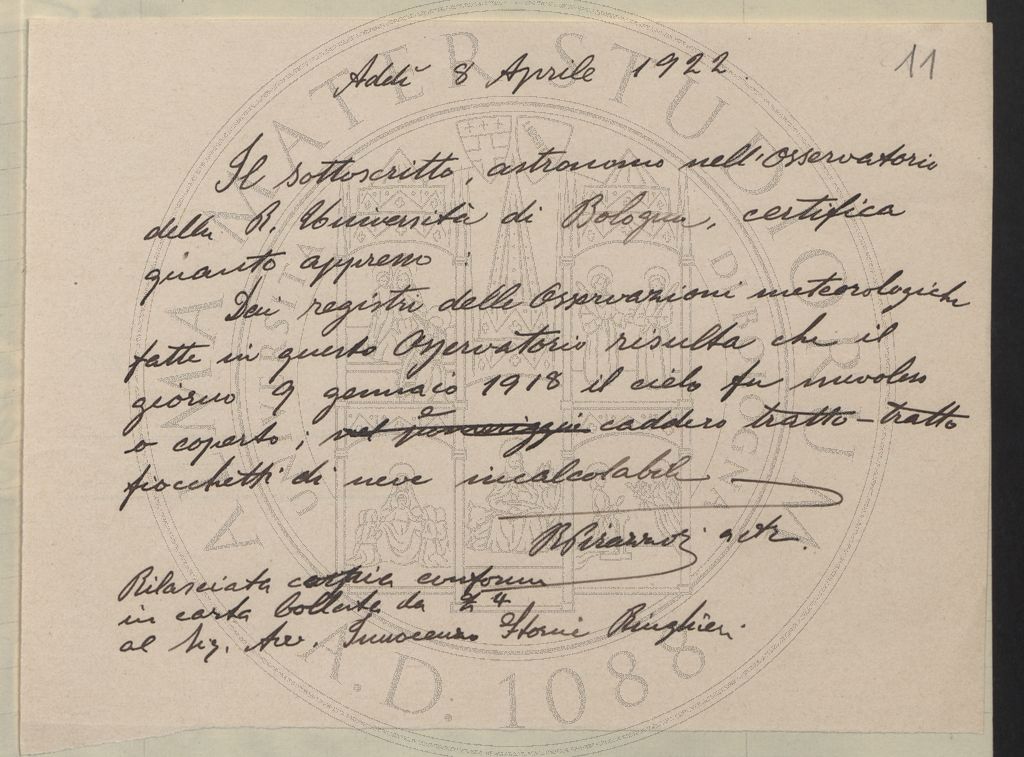 11
Addì 8 Aprile 1922.
Il sottoscritto, astronomo nell'Osservatorio
della R. Università di Bologna, certifica
quanto appresso:
Dai registri delle Osservazioni meteorologiche
fatte in questo Osservatorio risulta che il
giorno 9 gennaio 1918 il cielo fu nuvoloso
o coperto; nel pomeriggio caddero tratto-tratto
fiocchetti di neve incalcolabili
Rilasciata copia conforme
in carta bollata da £ 4
al Sig. Avv. Innocenzo Ringhieri.
ALMA MATER STUDIORUM
UNIVERSITÀ DI BOLOGNA
A.D. 1088